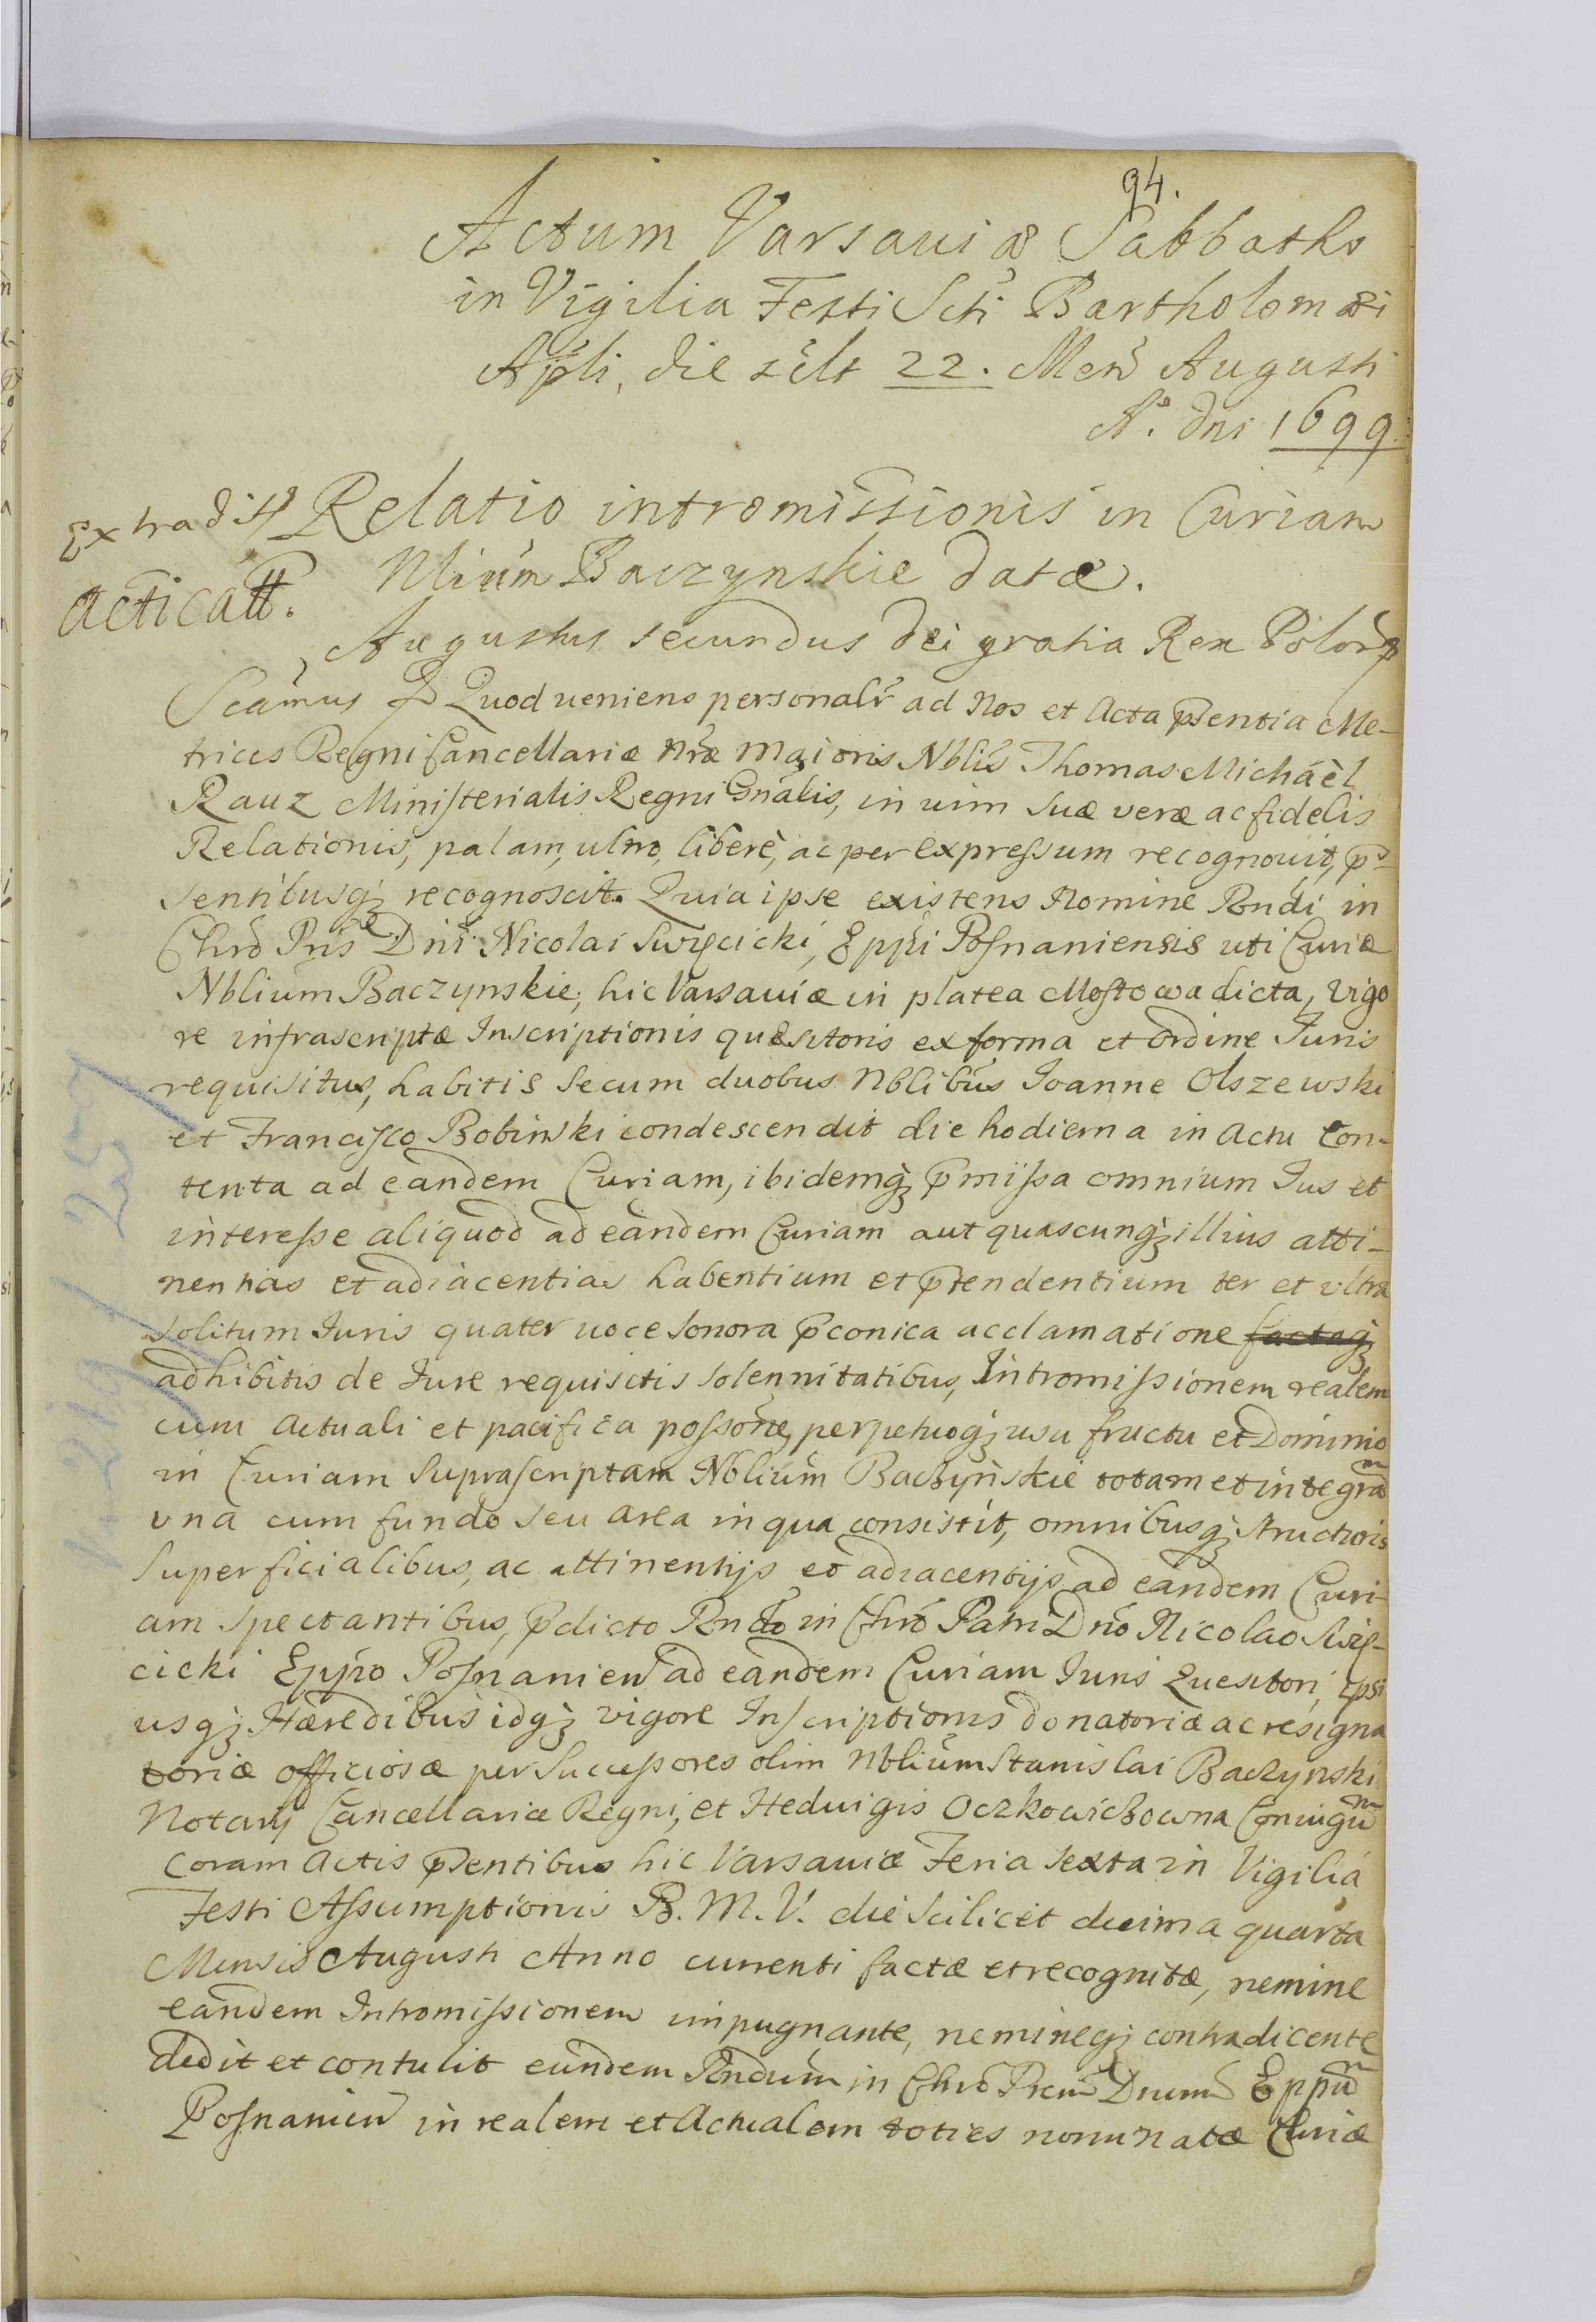 94.
Actum Varsaviæ Sabbatho
in Vigilia Festi Scti Bartholomæi
Apli, die scilt 22. Men Augusti
Ao. dni 1699
Extradit
Relatio intromissionis in Curiam
Nlium Baczynskie datæ.
Acticatt.
Augustus secundus dei gratia Rex Polor
Scamus Quod veniens personalr ad Nos et Acta pntia Me-
trices Regni Cancellariæ nræ Maioris Nblis Thomas Michäel
Rauz Ministerialis Regni Gnalis, in vim suæ veræ ac fidelis
Relationis, palam, ultro, liberè, ac per expressum recognovit, p-
sentibusq; recognoscit. Quia ipse existens Nomine Rondi in
Chro Pris Dni Nicolai Swięcicki, Eppi Posnaniensis uti Curiæ
Nblium Baczynskie, hic Varsaviæ in platea Mostowa dicta, vigo
re infrascriptæ Inscriptionis quæsitoris ex forma et ordine Juris
requisitus, habitis secum duobus Nblibus Joanne Olszewski
et Francisco Bobinski condescendit die hodierna in Actu Con-
tenta ad eandem Curiam, ibidemq; pmissa omnium Jus et
interesse aliquod ad eandem Curiam aut quascunq; illius atti-
nentias et adiacentias habentium et ptendentium ter et ultra
solitum Juris quater voce sonora pconica acclamatione factaq;
adhibitis de Jure requisitis solennitatibus, Intromissionem realem
cum Actuali et pacifica possone, perpetuoq; usu fructu et Dominio
in Curiam suprascriptam Nblium Baczyńskie totam et integram
vna cum fundo seu area in qua consistit, omnibusq; structuris
superficialibus, ac attinentijs et adiacentijs ad eandem Curi-
am spectantibus, pdicto Rndo in Chro Patri Dno Nicolao Swię-
cicki Eppo Posnanien ad eandem Curiam Juris Quesitori, ipsi
usq; Hæredibus idq; vigore Inscriptionis donatoriæ ac resigna
toriæ officiosæ per Successores olim Nblium Stanislai Baczynski
Notarij Cancellariæ Regni, et Hedvigis Oczkowiczowna Coniugum
coram Actis pntibus hic Varsaviæ Feria sexta in Vigilia
Festi Assumptionis B. M. V. die scilicet decima quarta
Mensis Augusti Anno currenti factæ et recognitæ, nemine
eandem Intromissionem impugnante, nemineq; contradicente
dedit et contulit eundem Rndum in Chro Prem Dnum Eppum
Posnanien in realem et Actualem toties nominatæ Curiæ